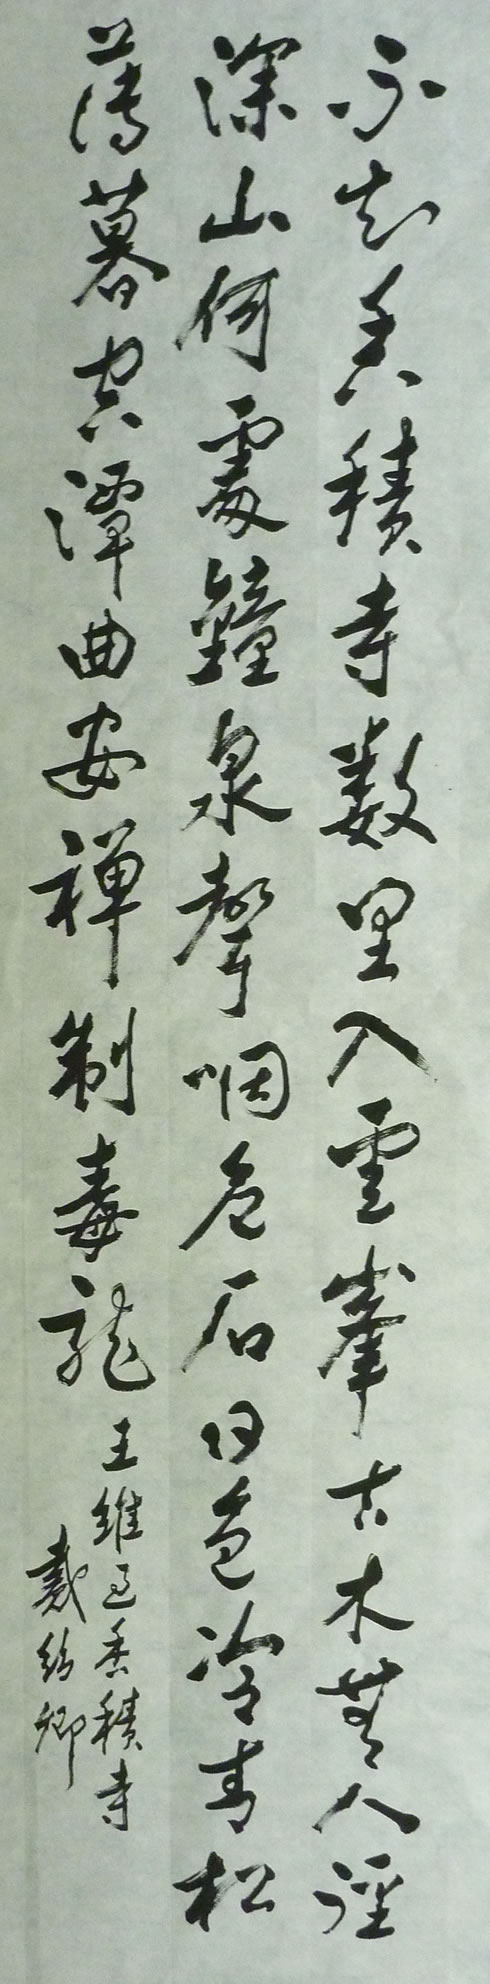 不知香積寺數里入雲峯古木無人徑
深山何處鐘泉聲咽危石日色冷青松
薄暮空潭曲安禪制毒龍
王維過香積寺
戴
卿